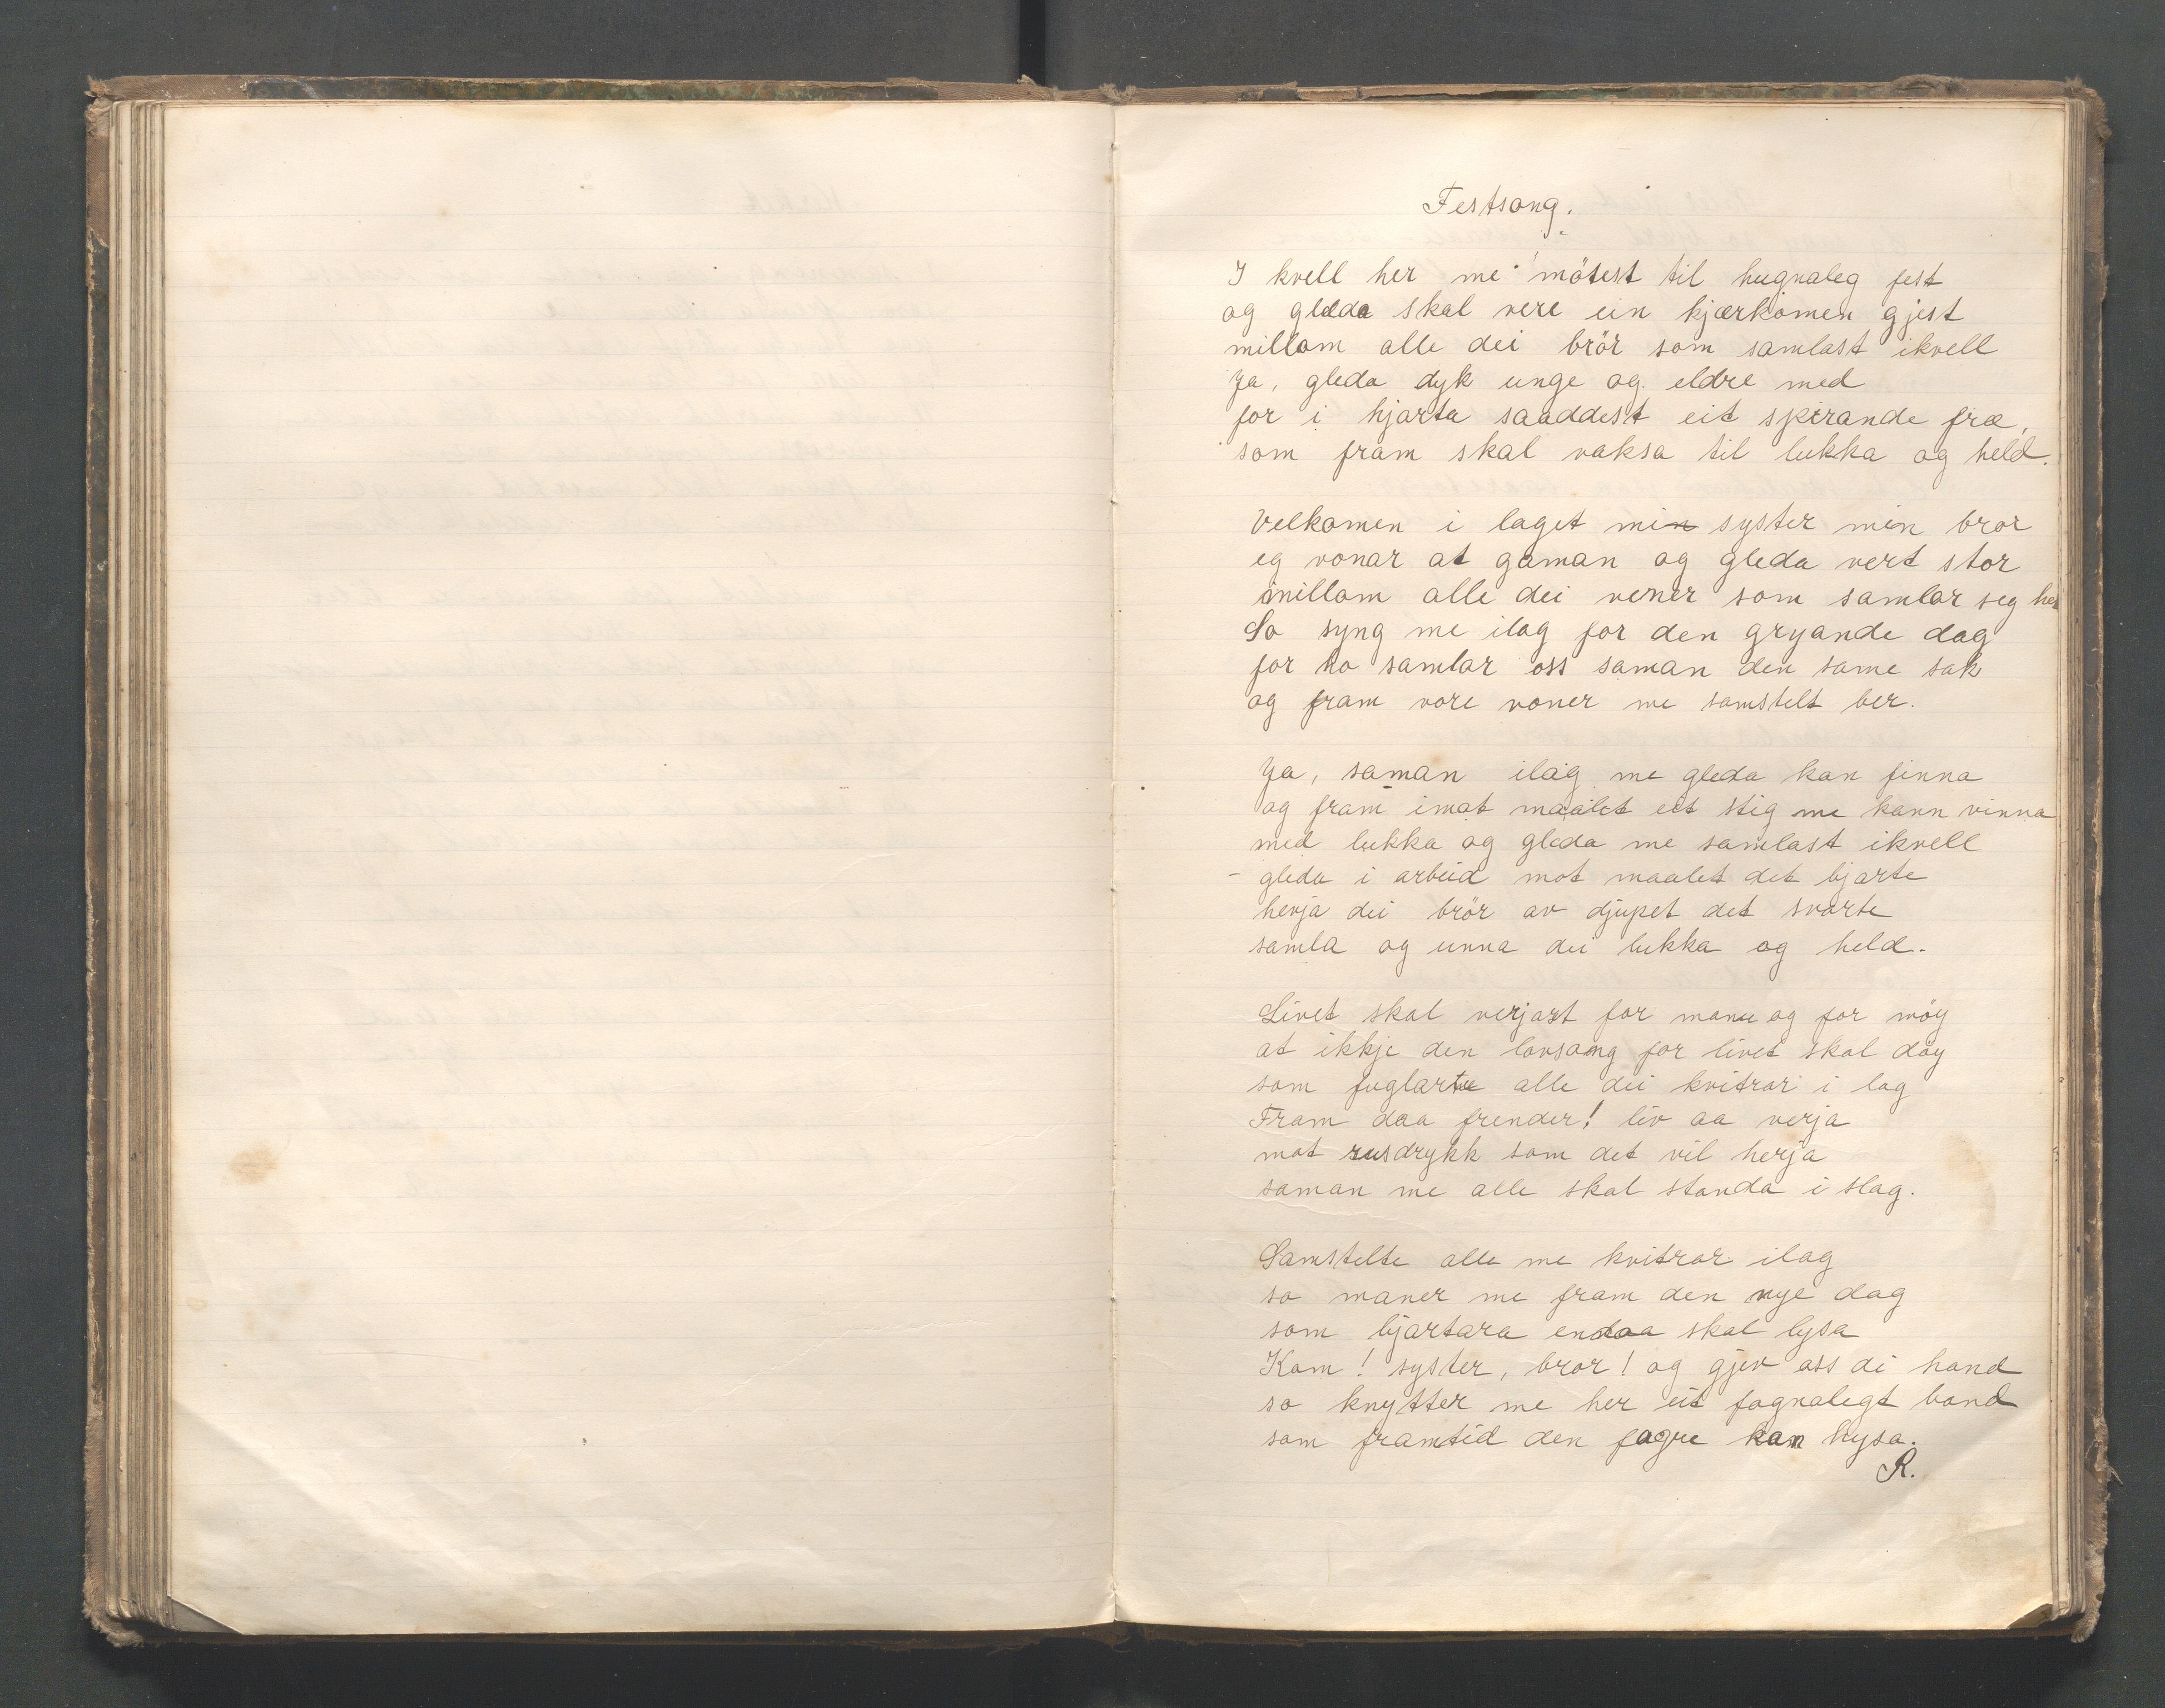 Festsong.
I kvell her me mötest til hugnaleg fest
og gleda skal vere ein kjærkomen gjest
millom alle dei brör som samlast ikvell
Ja, gleda dyk unge og eldre med
for i hjarta saaddest eit spirande fræ,
som fram skal vaksa til lukka og held.
Velkomen i laget min syster min bror
eg vonar at gaman og gleda vert stor
millom alle dei vener som samlar seg her
So syng me ilag for den gryande dag
for ho samlar oss saman den same sak
og fram vore voner me samstelt ber.
Ja, saman ilag me gleda kan finna
og fram imot maalet eit stig me kann vinna
med lukka og gleda me samlast ikvell
- gleda i arbeid mot maalet det bjarte
hevja dei brör av djupet det svarte
samla og unna dei lukka og held.
Livet skal verjast for mann og for möy
at ikkje den lovsong for livet skal döy
som fuglarne alle dei kvitrar i lag
Fram daa frender! liv aa verja
mot rusdrykk som det vil herja
saman me alle skal standa i slag.
Samstelte alle me kvitrar ilag
so maner me fram den nye dag
som bjartara endaa skal lysa
Kom! syster, bror! og gjev oss di hand
so knytter me her eit fagnalegt band
som framtid den fagre kan hysa.
R.